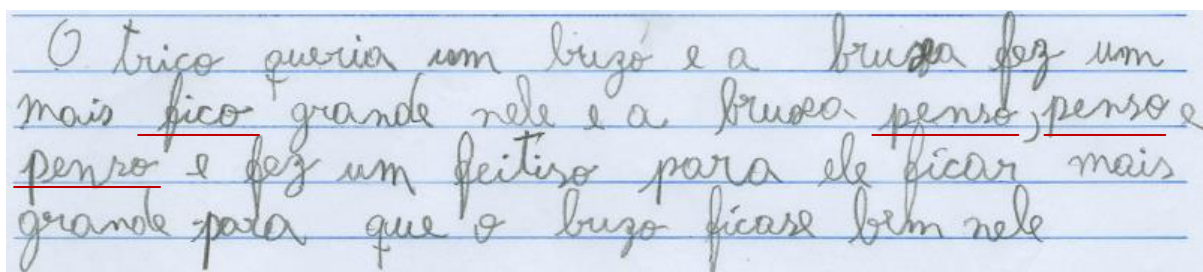 O trico queria um buzo e a bruxa fez um
mais fico grande nele e a bruxa penso, penso e
penso e fez um feitiso para ele ficar mais
grande para que o buzo ficase bem nele